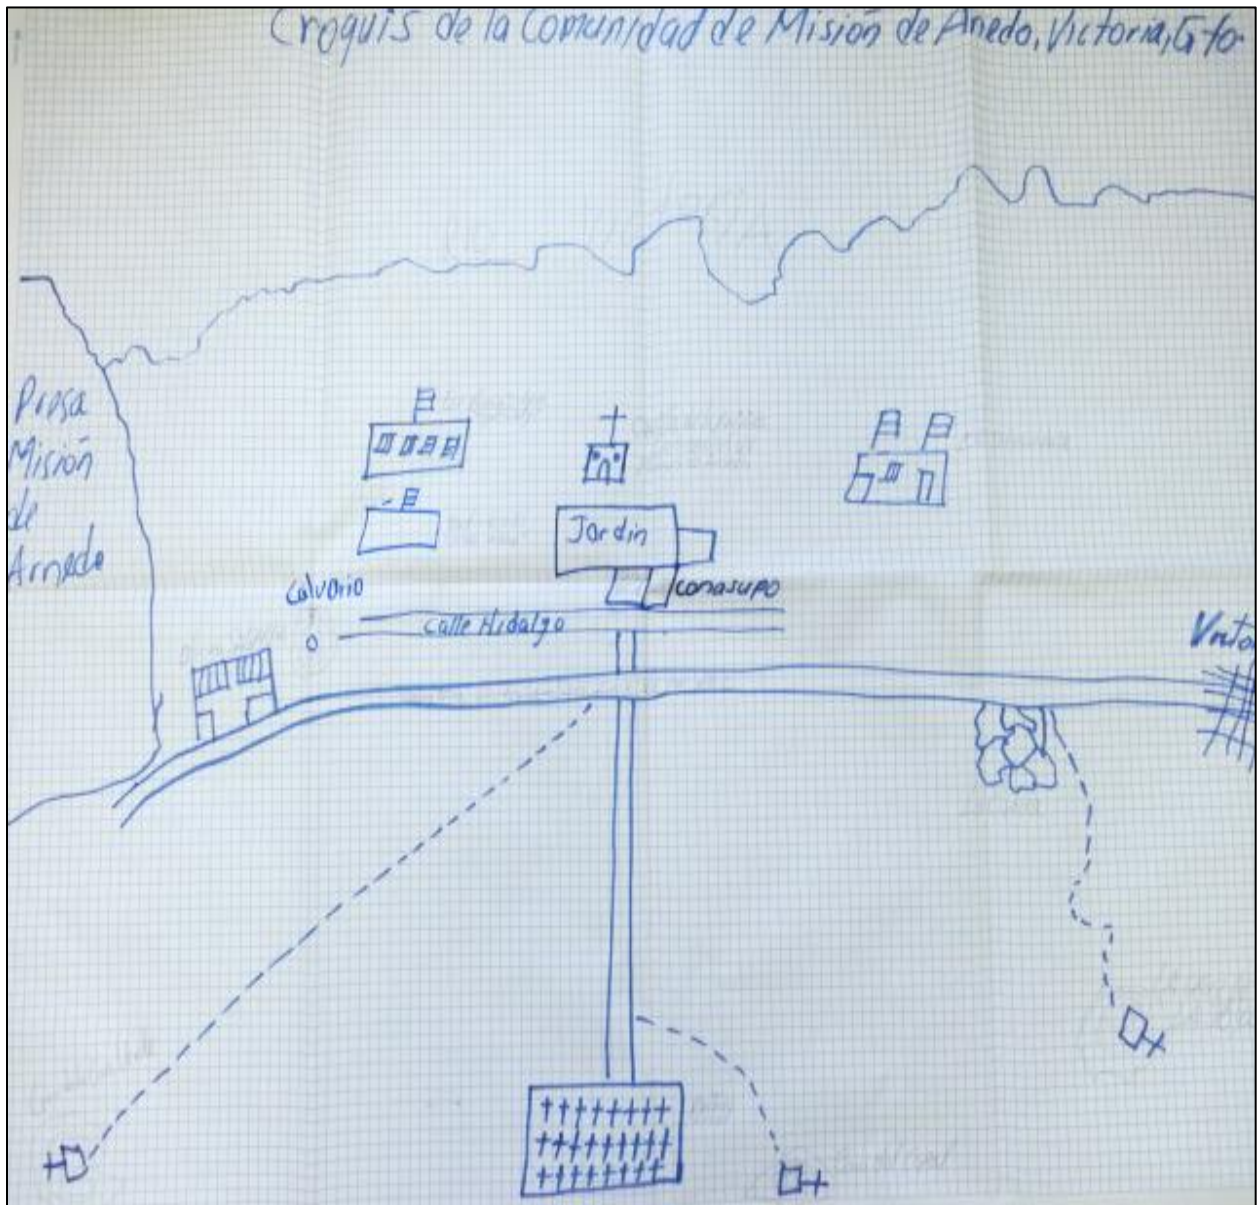 Croquis de la Comunidad de Misión de Anedo, Victoria, Gto
Presa
Misión
de
Arnedo
Jardin
Conasupo
Calvario
Calle Hidalgo